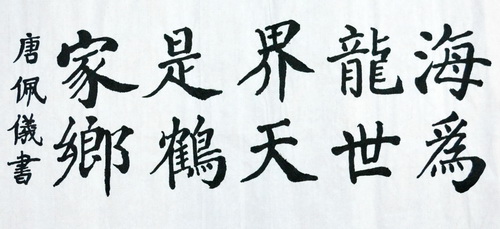 海為
龍世
界天
是鶴
家鄉
唐佩儀書